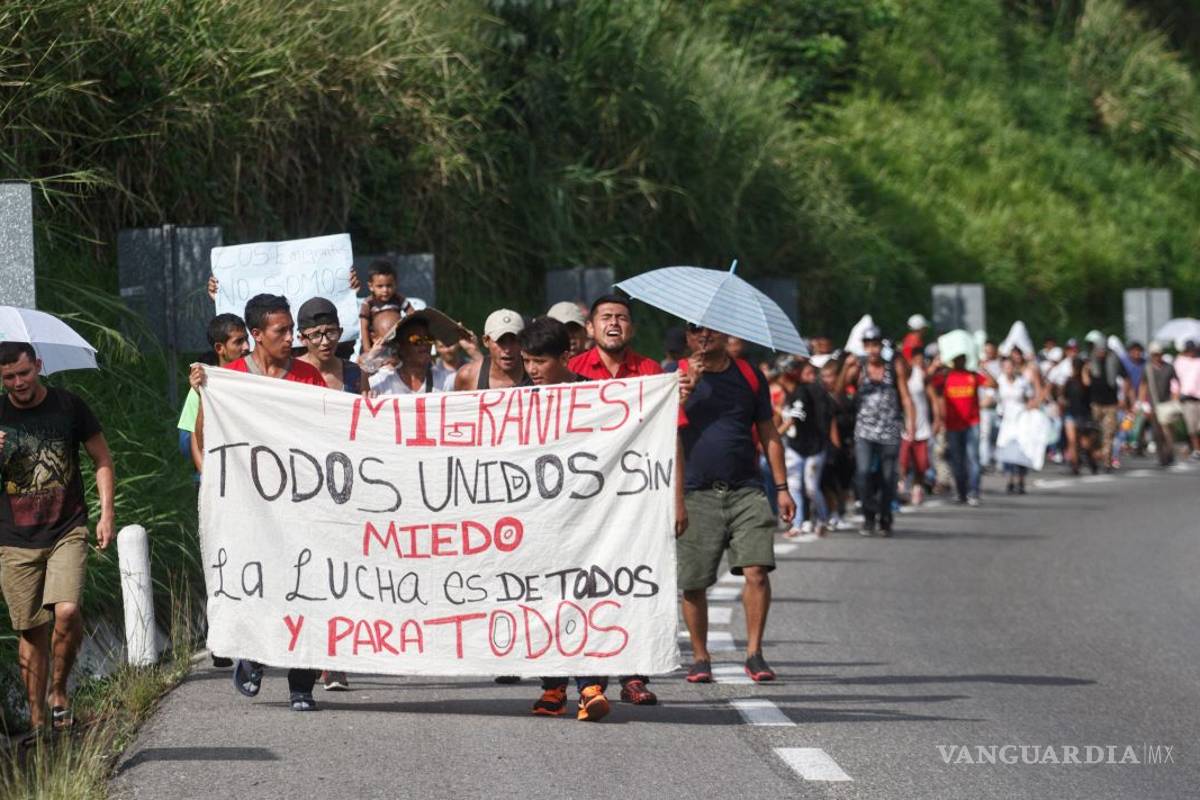 LOS Emigrantes
NO SOMOS
¡MIGRANTES!
TODOS UNIDOS SiN
MIEDO
La LUCHA es DE TODOS
Y PARA TODOS
VANGUARDIA|MX